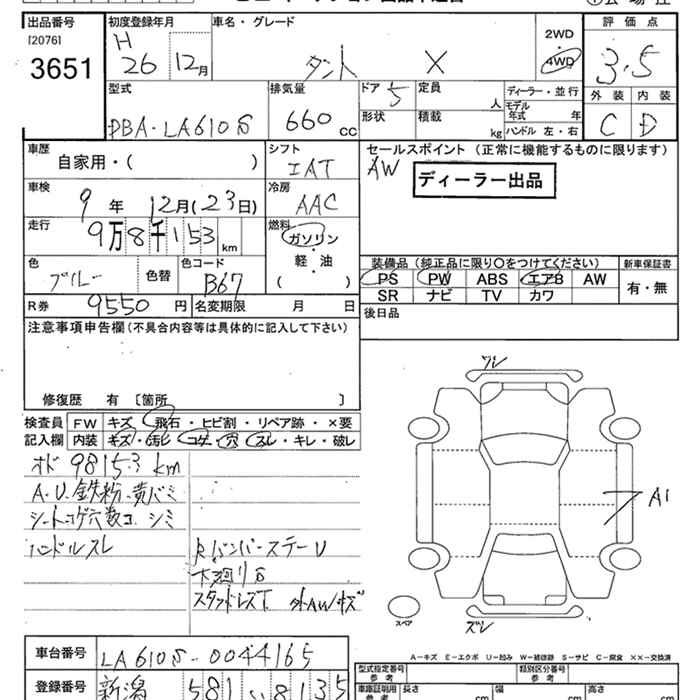 出品番号 初度登録年月 車名・グレード 2WD 評価点
[2076] H 4WD 3.5
3651 26 12月 タント X 外装 内装
型式 排気量 ドア 5 定員 人 ディーラー・並行 C D
DBA-LA610S 660 cc 形状 積載 kg モデル年式 年 ハンドル 左・右
車歴 自家用・( ) シフト IAT セールスポイント (正常に機能するものに限ります)
AW ディーラー出品
車検 9年 12月(23日) 冷房 AAC
走行 9万8千153km 燃料 ガソリン・軽・油 ( )
装備品 (純正品に限り○をつけてください) 新車保証書
色 ブルー 色替 色コード B67 PS PW ABS エアB AW 有・無
SR ナビ TV カワ
R券 9550円 名変期限 月 日 後日品
注意事項申告欄(不具合内容等は具体的に記入して下さい)
修復歴 有 [箇所 ]
ワレ
検査員 FW キズ・飛石・ヒビ割・リペア跡・×要
記入欄 内装 キズ・汚レ・コゲ・穴・スレ・キレ・破レ
オド 98153km
A.U.鉄粉.黄バミ
シートコゲ穴数コ.シミ A1
ハンドルスレ RバンパーステーU
下廻りS
スタッドレスT 外AWキズ
スペア ズレ
A…キズ E…エクボ U…凹み W…補修跡 S…サビ C…腐食 XX…交換済
車台番号 LA610S-0044165 型式指定番号 参考 類別区分番号 参考
登録番号 新潟 581 い 8135 車庫証明用 参考 長さ cm 幅 cm 高さ cm